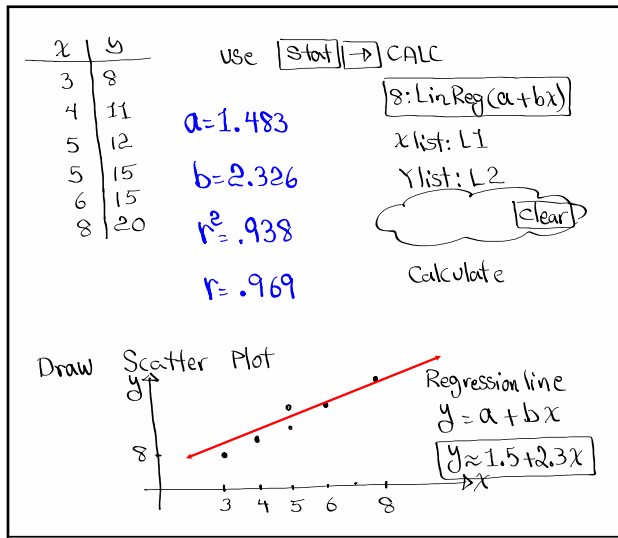 x y
3 8
4 11
5 12
5 15
6 15
8 20
use Stat → CALC
8:LinReg(a+bx)
Xlist: L1
Ylist: L2
clear
Calculate
a=1.483
b=2.326
r²=.938
r=.969
Draw Scatter Plot
y
8
3 4 5 6 8
x
Regression line
y=a+bx
y≈1.5+2.3x